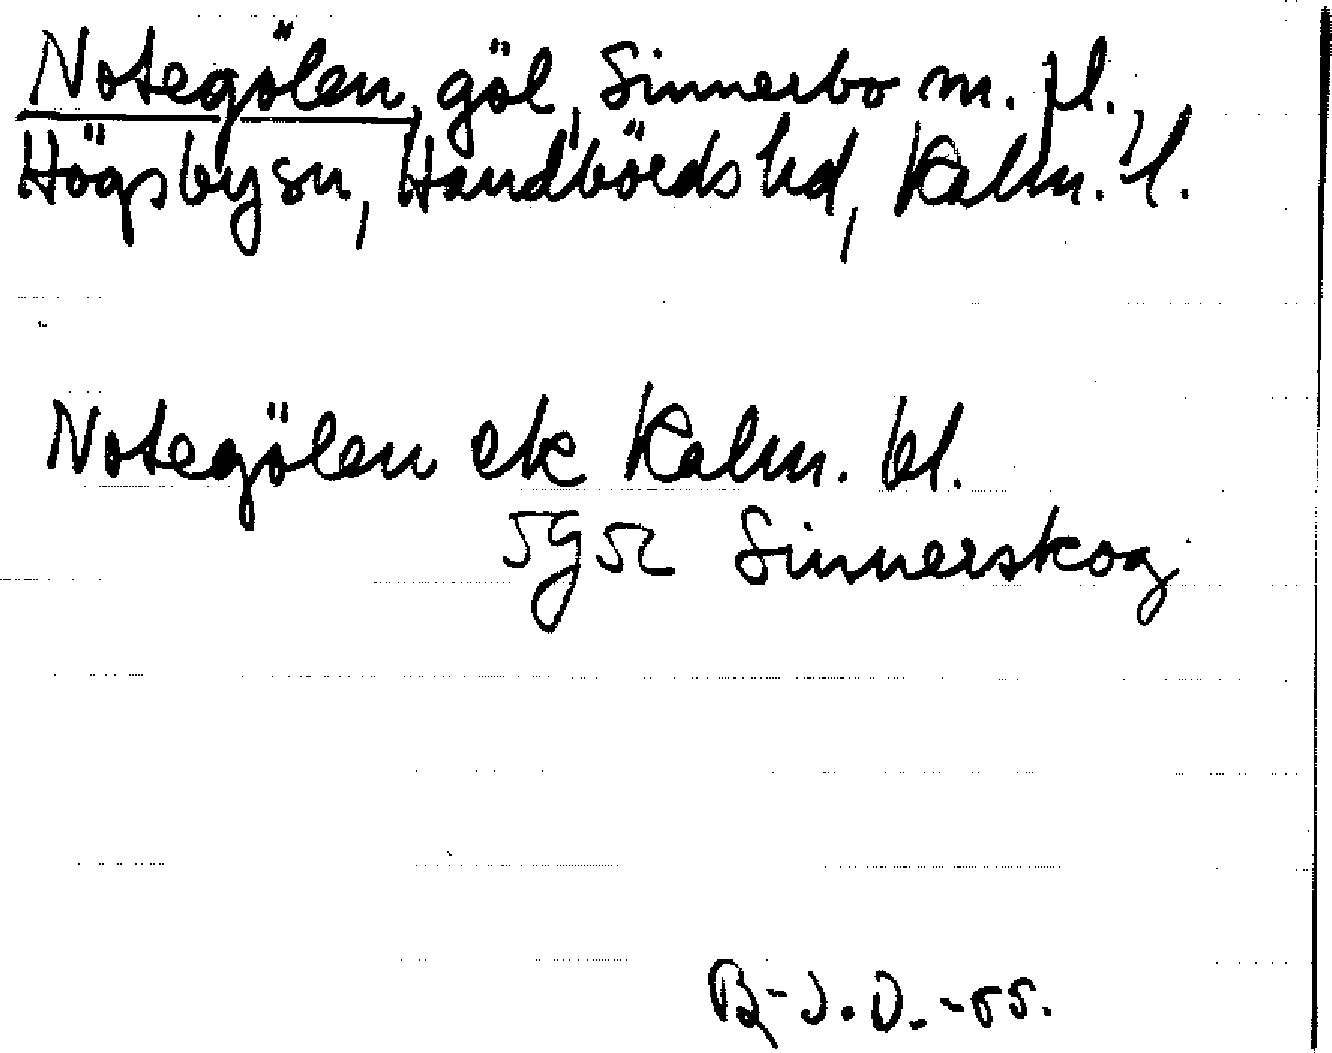 Notegölen, göl, Sinnerbo m. fl.,
Högsby sn, Handbörds hd, Kalm. l.
Notegölen ek Kalm. bl.
5g52 Sinnerskog
B-J.O.-55.